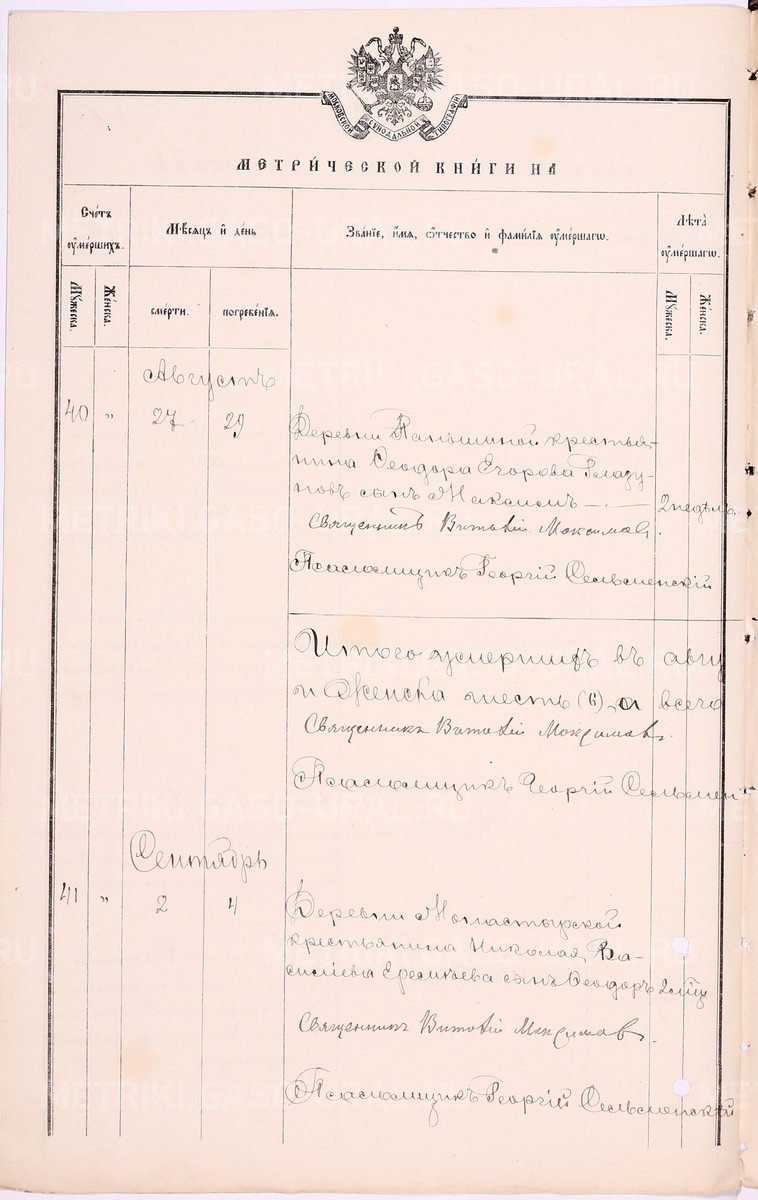 МОСКОВСКОЙ СѴНОДАЛЬНОЙ ТИПОГРАФІИ
МЕТРИ́ЧЕСКОЙ КНИ́ГИ НА
Сче́тъ ᲂу҆ме́ршихъ.
Мѣ́сяцъ и҆ де́нь
Зва́нїе, и҆́мѧ, ѻ҆́тчество и҆ фами́лїѧ ᲂу҆ме́ршагѡ.
Лѣ́та ᲂу҆ме́ршагѡ.
Мꙋ́жеска.
Же́нска.
сме́рти.
погребе́нїѧ.
Мꙋ́жеска.
Же́нска.
Августъ
40 " 27 29
Деревни Паньшиной крестья-
нина Ѳеодора Егорова Гладу-
новъ сынъ Максимъ — 2 недѣль.
Священникъ Виталій Максимовъ.
Псаломщикъ Георгій Сельменскій
Итого умершихъ въ авгу
и Женска шесть (6), а всего
Священникъ Виталій Максимовъ.
Псаломщикъ Георгій Сельмен
Сентябрь
41 " 2 4
Деревни Монастырской
крестьянина Николая Ва-
силіева сынъ Ѳеодоръ
Священникъ Виталій Максимовъ.
Псаломщикъ Георгій Сельменскій
METRIKI.GASO-URAL.RU